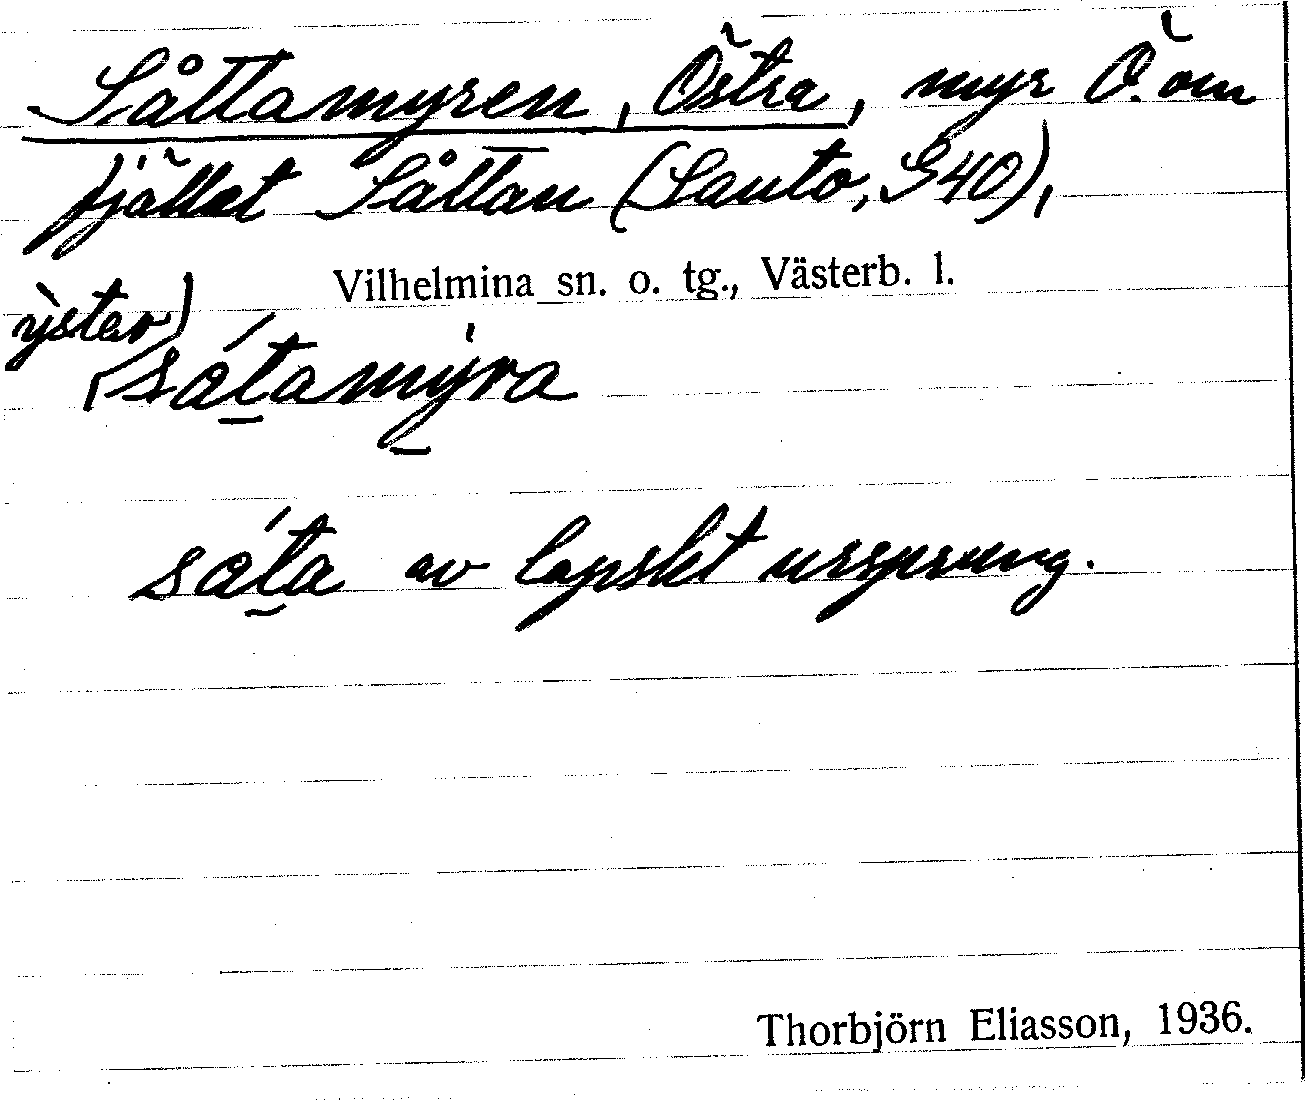 Såttamyren, Östra, myr Ö. om
fjället Såttan (Sauto, G40),
Vilhelmina sn. o. tg., Västerb. l.
ỳstər)
(sátamýra
sáta av lapskt ursprung.
Thorbjörn Eliasson, 1936.